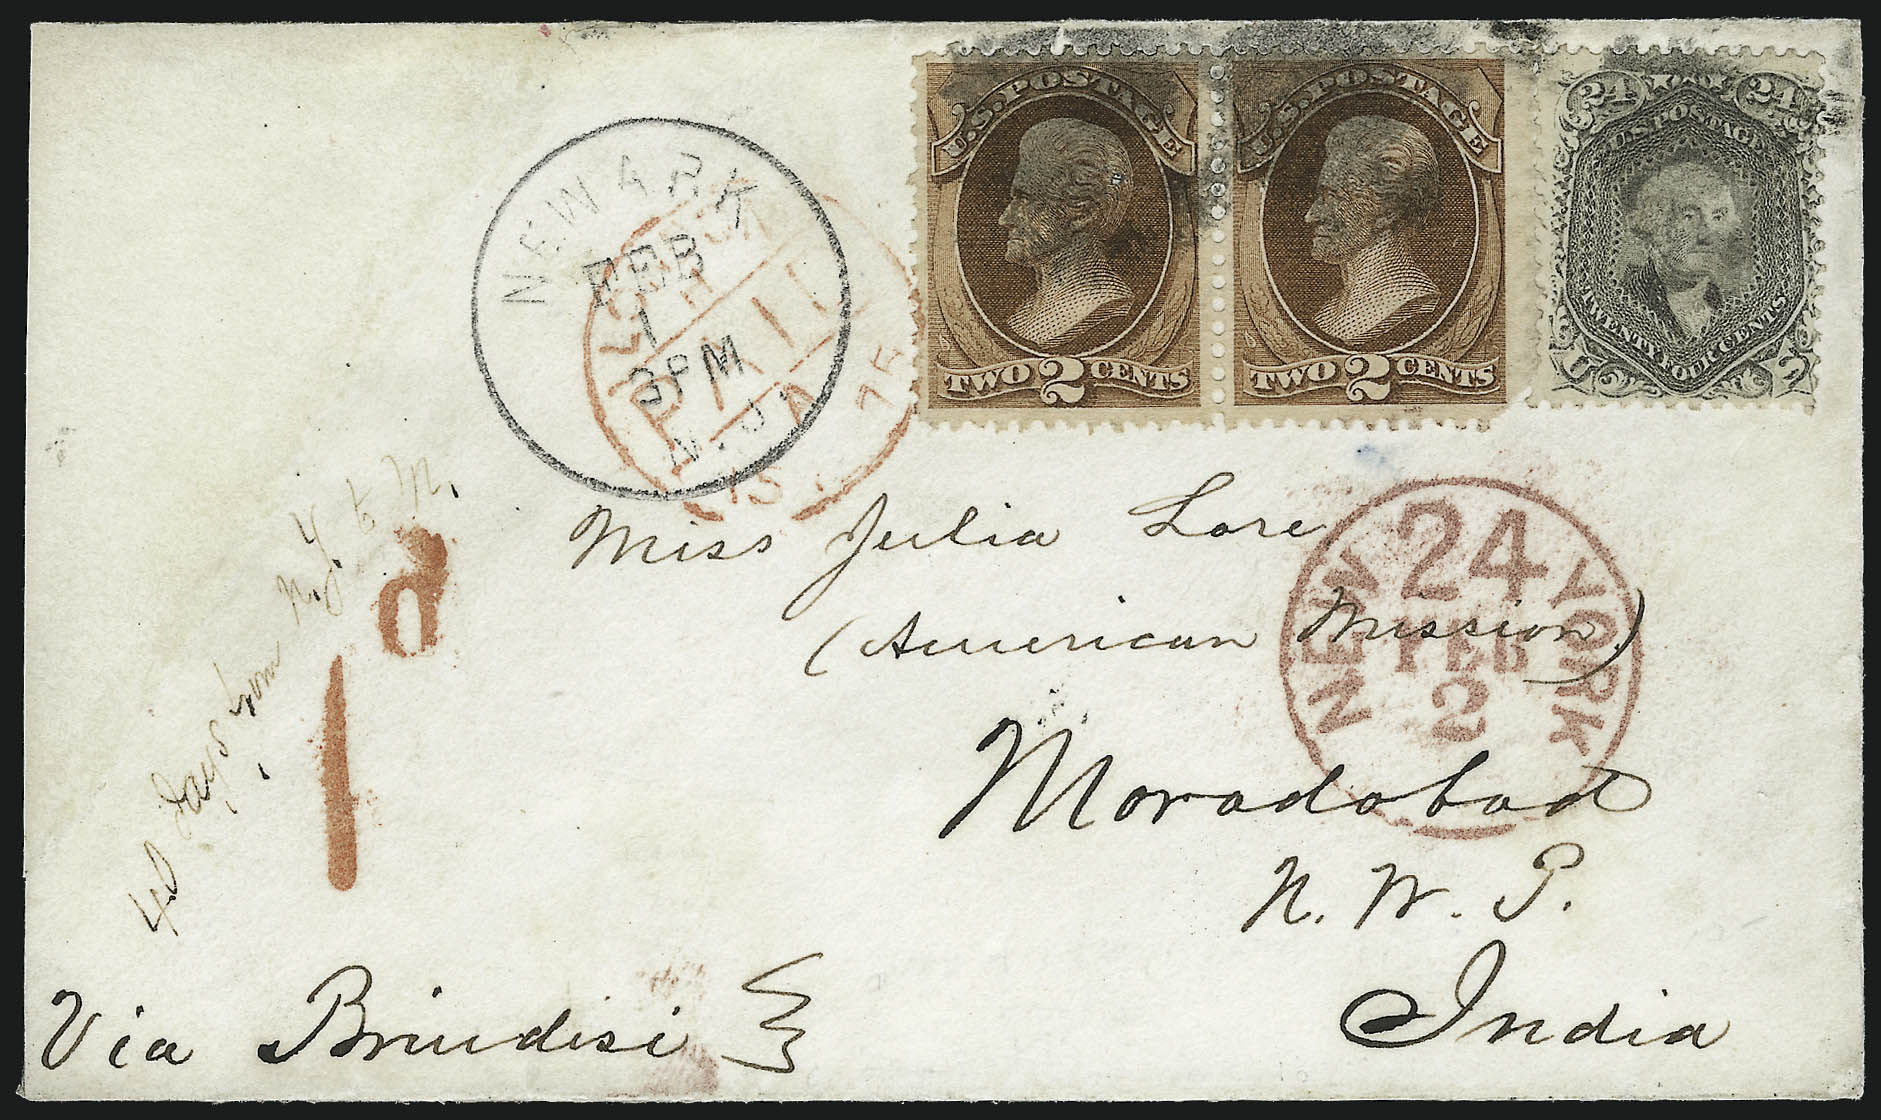 U.S. POSTAGE
TWO 2 CENTS
U.S. POSTAGE
TWO 2 CENTS
24 24
U.S. POSTAGE
TWENTY FOUR CENTS
U S
NEWARK
FEB
1
3 PM
N.J.
LONDON
PAID
75
Miss Julia Lore
(American Mission)
Moradabad
N. W. P.
India
NEW YORK
24
FEB
2
40 days from N.J.
1d
Via Brindisi